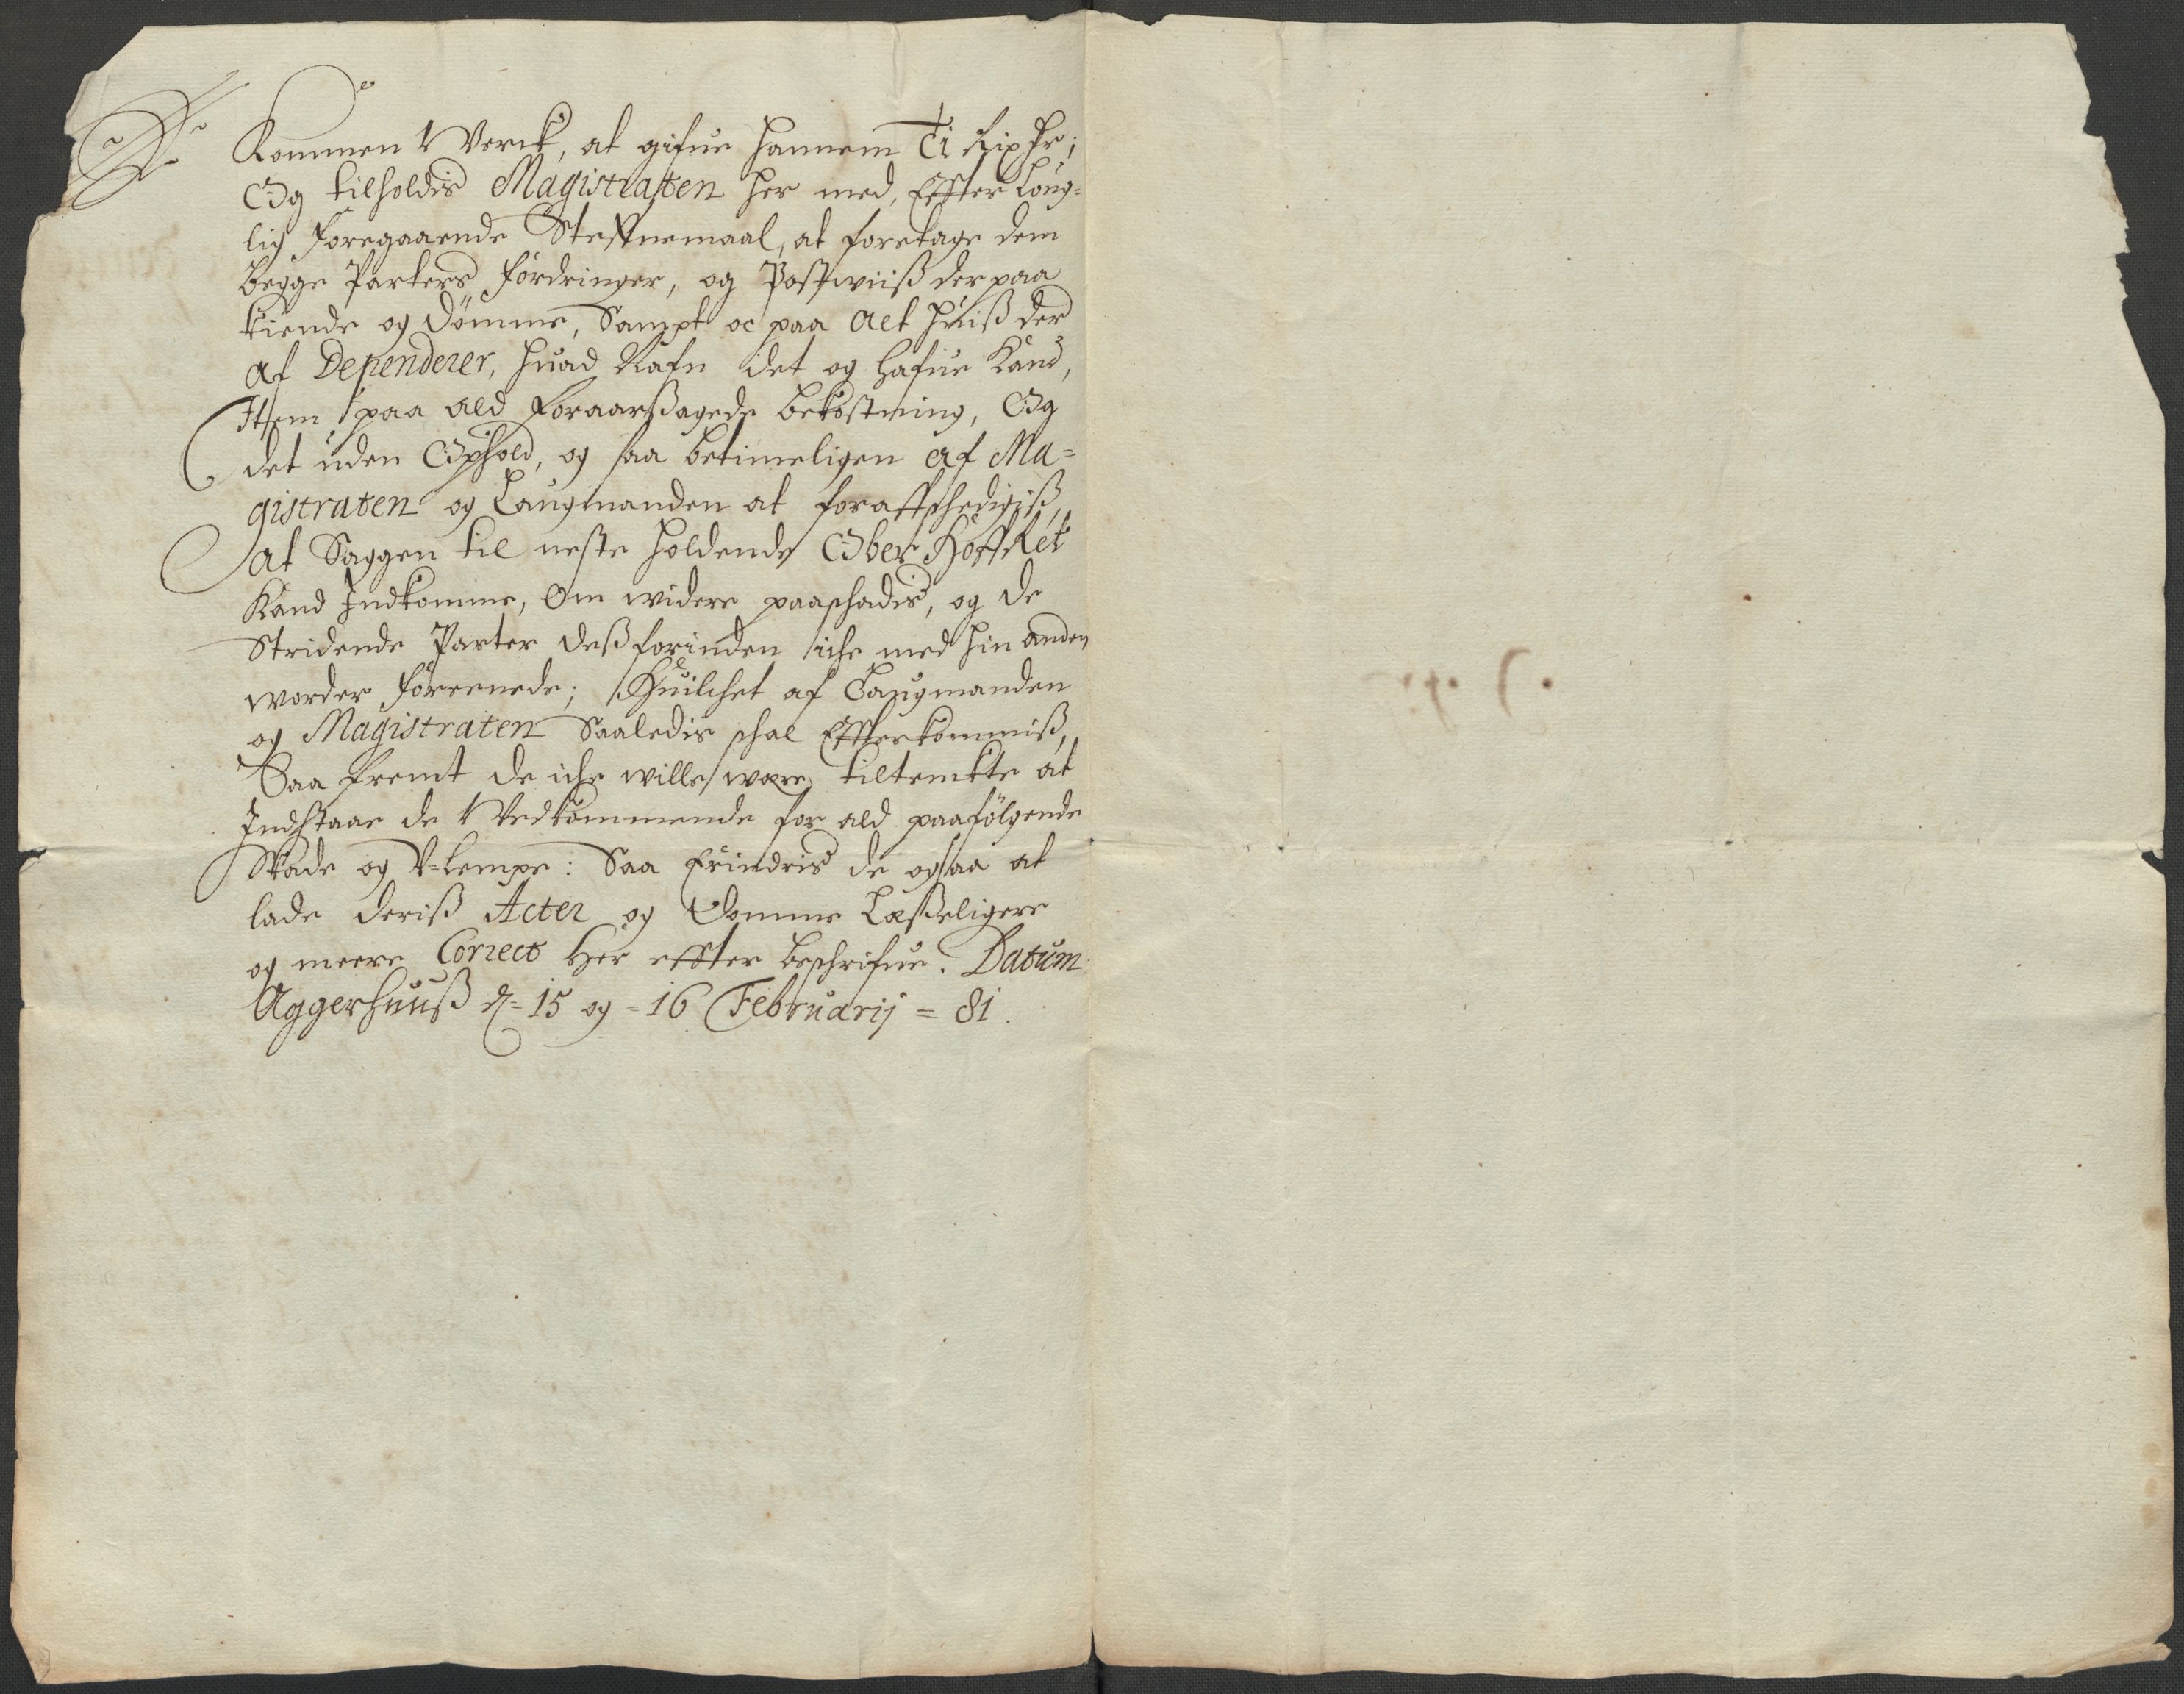 Kommen Verck, at gifue hannem Ti Rixdr;
Og tilholdis Magistraten her med, Effter Loug=
lig Foregaaende Steffnemaal, at foretage dem
begge Parters fordringer, og Postwiiß der paa
kiende og dömme, Sampt oc paa alt huiß der
af Dependerer, huad Nafn det og hafue Kand,
Item paa ald foraarßagede bekostning, Og
det uden Ophold, og saa betimeligen af Ma=
gistraten og Laugmanden at foraffschedigiß,
at Saggen til neste holdende Ober Hoff Ret
Kand Indkomme, Om widere paaschadis, og de
Stridende Parter deßforinden iche med hin anden
worder foreenede; Huilchet af Laugmanden
og Magistraten Saaledis schal Effterkommiß,
Saa fremt de iche wille were tiltenkte at
Indstaae de Vedkommende for ald paafölgende
Skade og V-lempe: Saa Erindris de ogsaa at
lade deriß Acter og Domme Læßeligere
og meere Correct Her effter beschrifue. Datum
Aggerhuuß d= 15 og = 16 Februarij = 81.